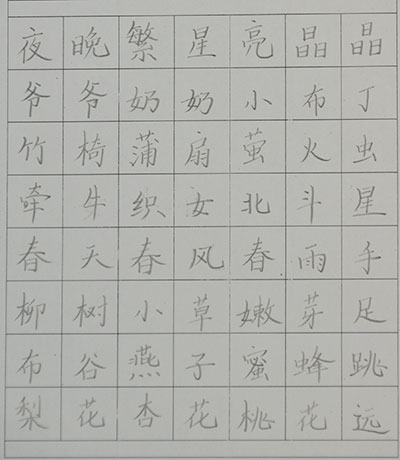 夜晚繁星亮晶晶
爷爷奶奶小布丁
竹椅蒲扇萤火虫
牵牛织女北斗星
春天春风春雨手
柳树小草嫩芽足
布谷燕子蜜蜂跳
梨花杏花桃花远